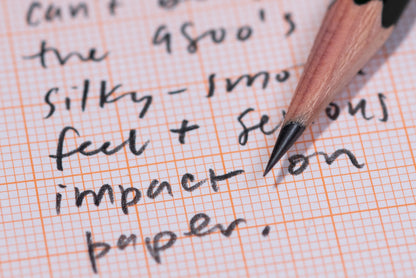 can't
the 9800's
silky-smo
feel + se ious
impact on
paper.